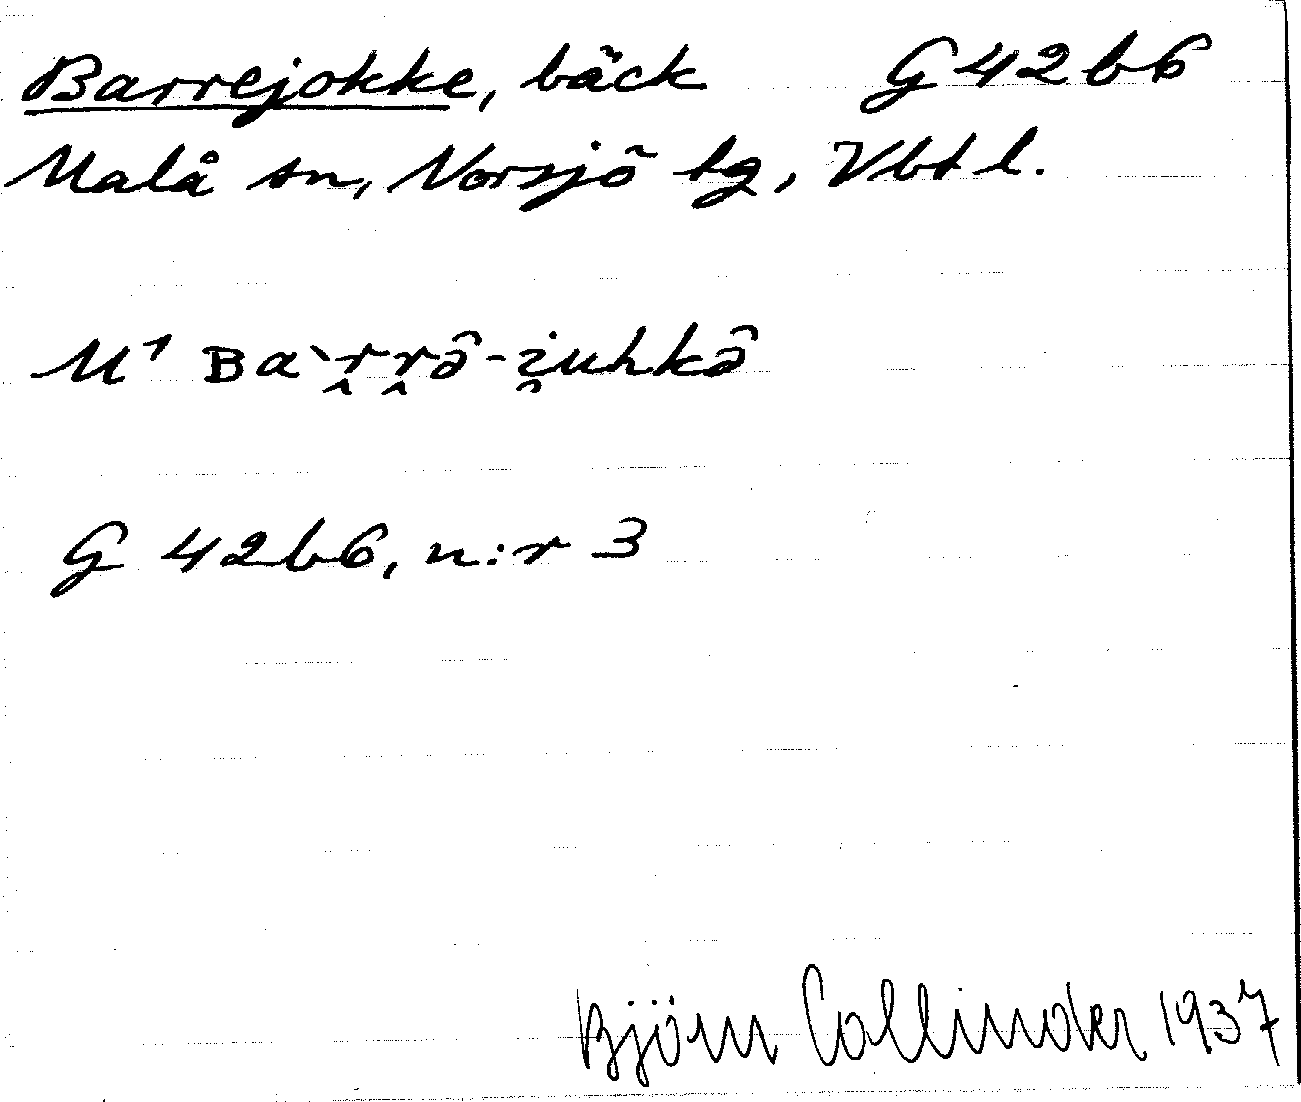 Barrejokke, bäck G 42 b 6
Malå sn, Norsjö tg, Vbt l.
M¹ ʙaˋr̭r̭ə̂-i̯uhkə̂
G 42 b 6, n:r 3
Björn Collinder 1937